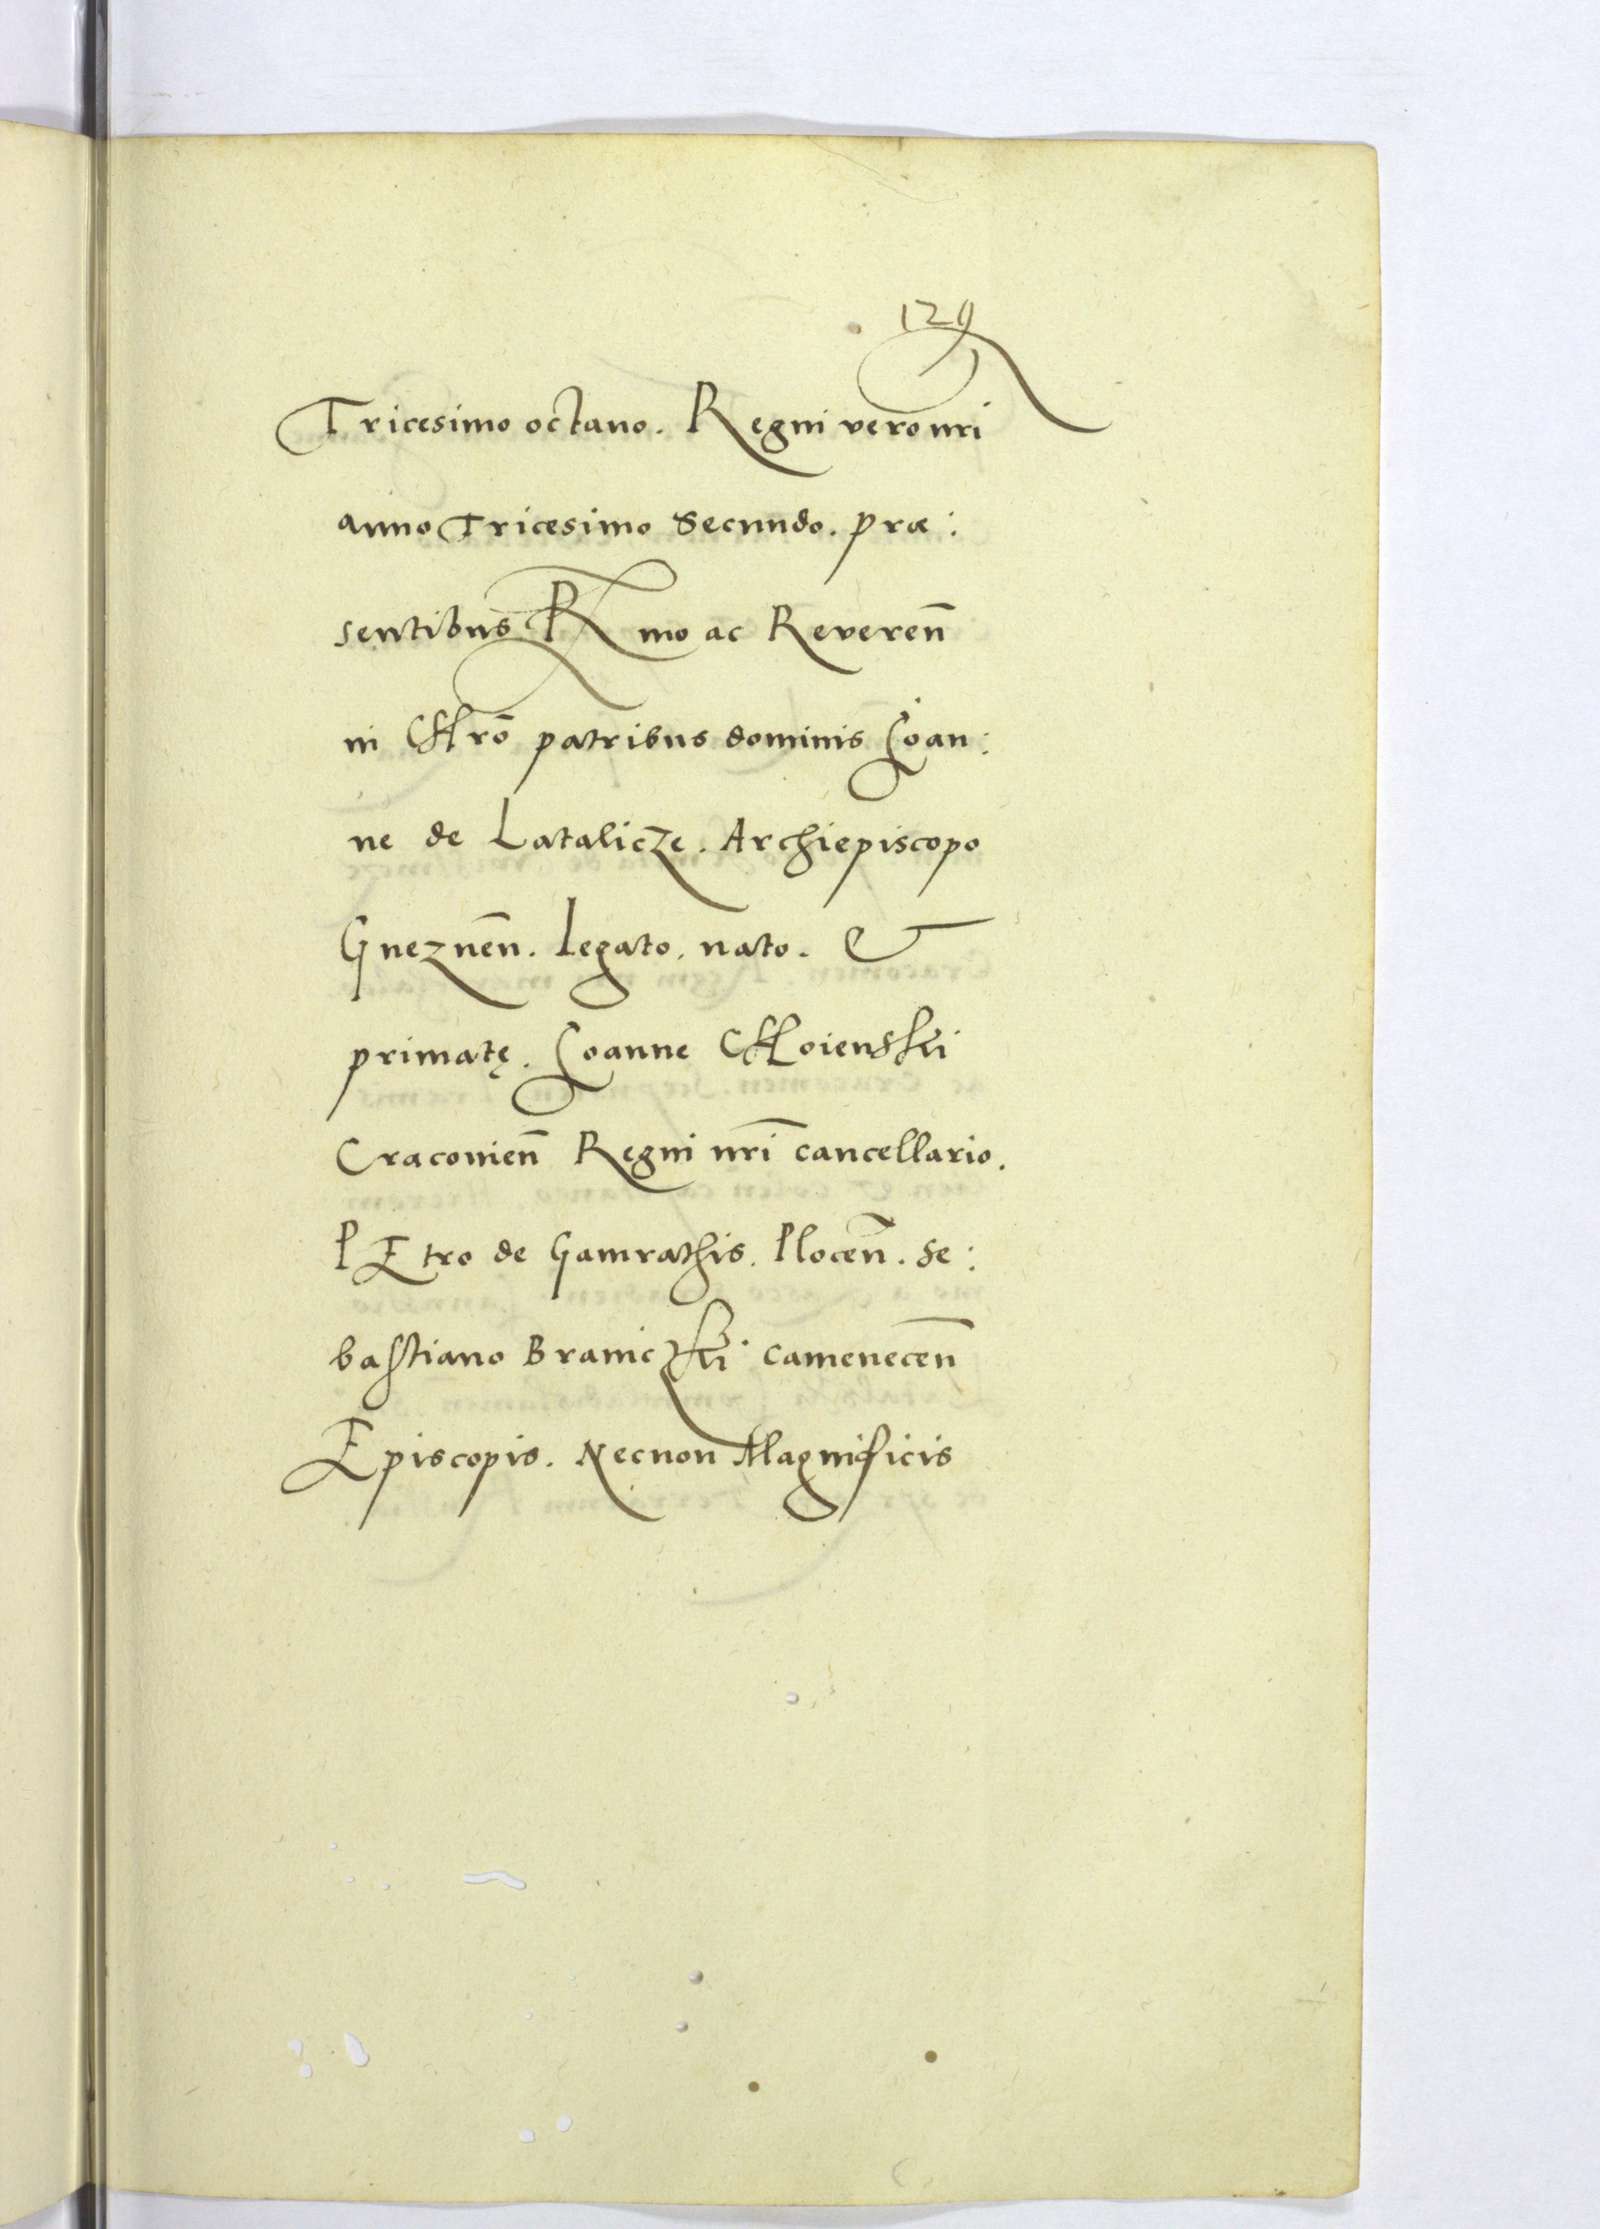 129
Tricesimo octavo. Regni vero nri
anno Tricesimo Secundo. præ:
sentibus Rmo ac Reveren̄
in Chrō patribus dominis Ioan:
ne de Latalicze. Archiepiscopo
Gneznen̄. Legato. nato. &
primatę. Ioanne Choienski
Cracovien̄ Regni nrī cancellario.
PEtro de Gamrathis. Plocen̄. Se:
bastiano Braniczki camenecen̄
Episcopis. Necnon Magnificis